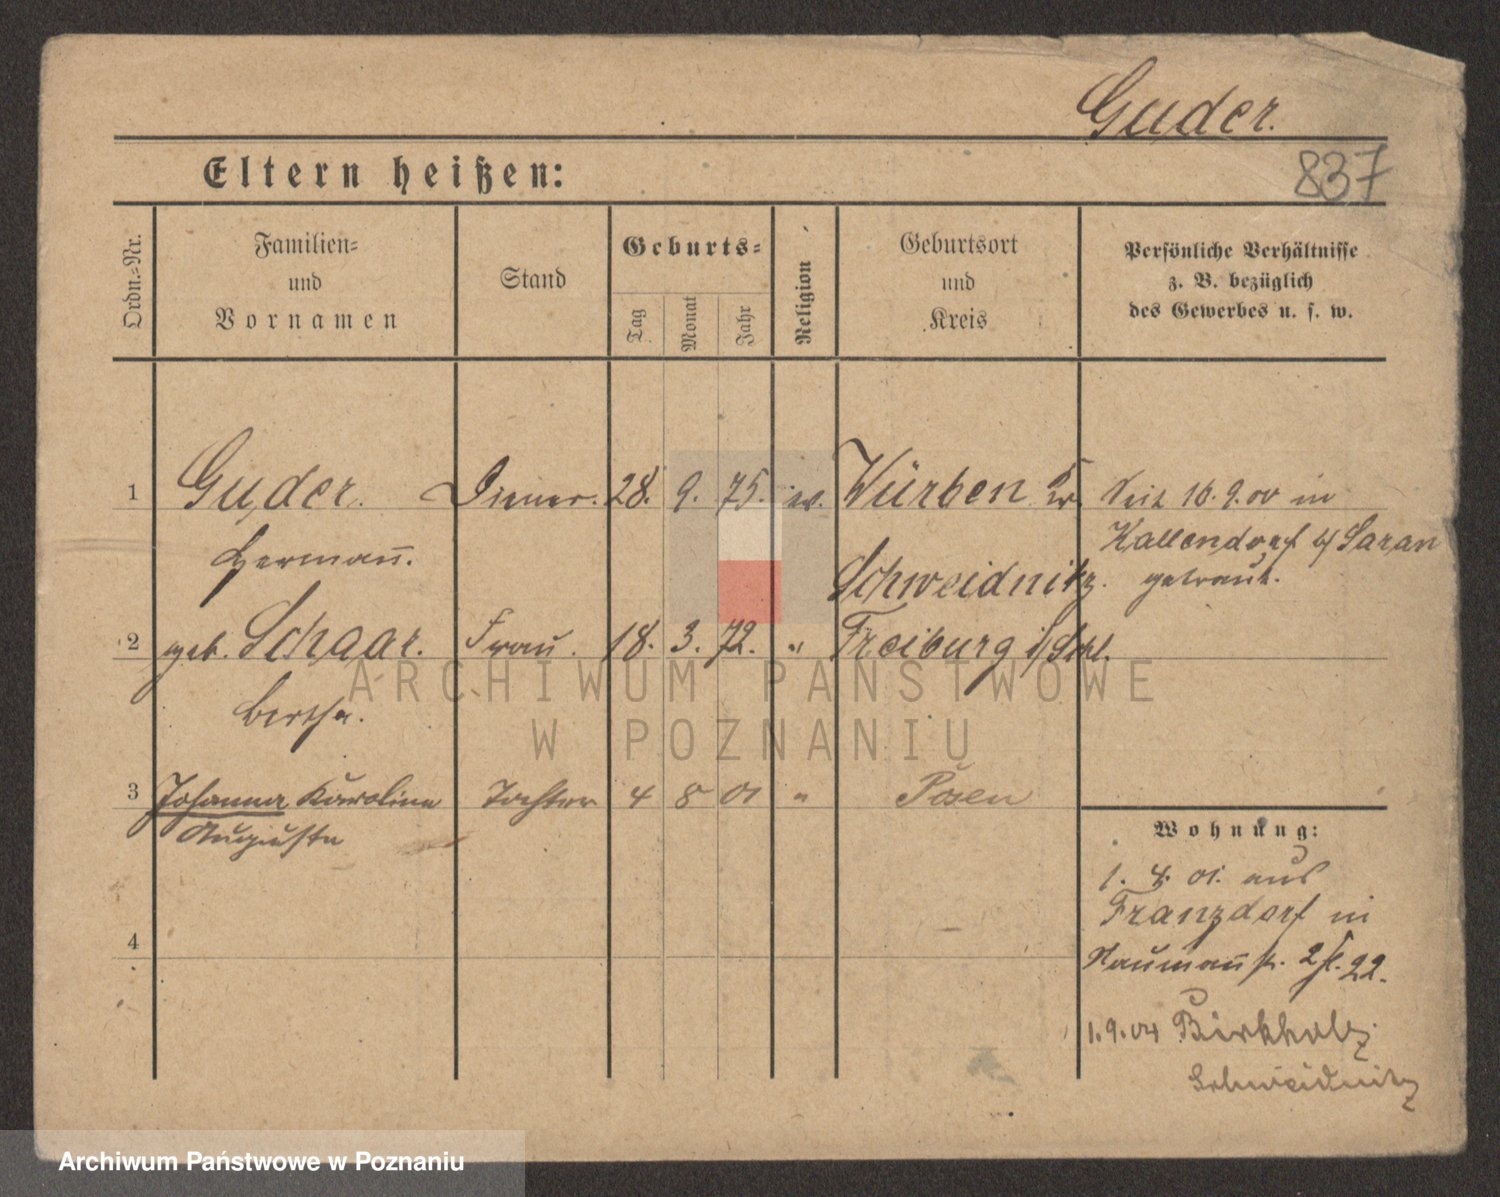 Guder.
837
Eltern heißen:
Ordn.=Nr.
Familien=
und
Vornamen
Stand
Geburts=
Tag
Monat
Jahr
Religion
Geburtsort
und
Kreis
Persönliche Verhältnisse
z. B. bezüglich
des Gewerbes u. s. w.
1 Guder. Diener. 28. 9. 75. ev. Würben Kr. Seit 16.9.00 in
Hermañ. Schweidnitz. Kallendorf b/ Saran
getraut.
2 geb. Schaar. Frau. 18. 3. 72. " Freiburg i/Schl.
Bertha.
3 Johanna Karoline Tochter 4 8 01 " Posen
Augusta
4
Wohnung:
1. 4. 01. aus
Franzdorf in
Naumañstr. 22.
1.9.04 Birkholz
Schweidnitz
ARCHIWUM PAŃSTWOWE
W POZNANIU
Archiwum Państwowe w Poznaniu